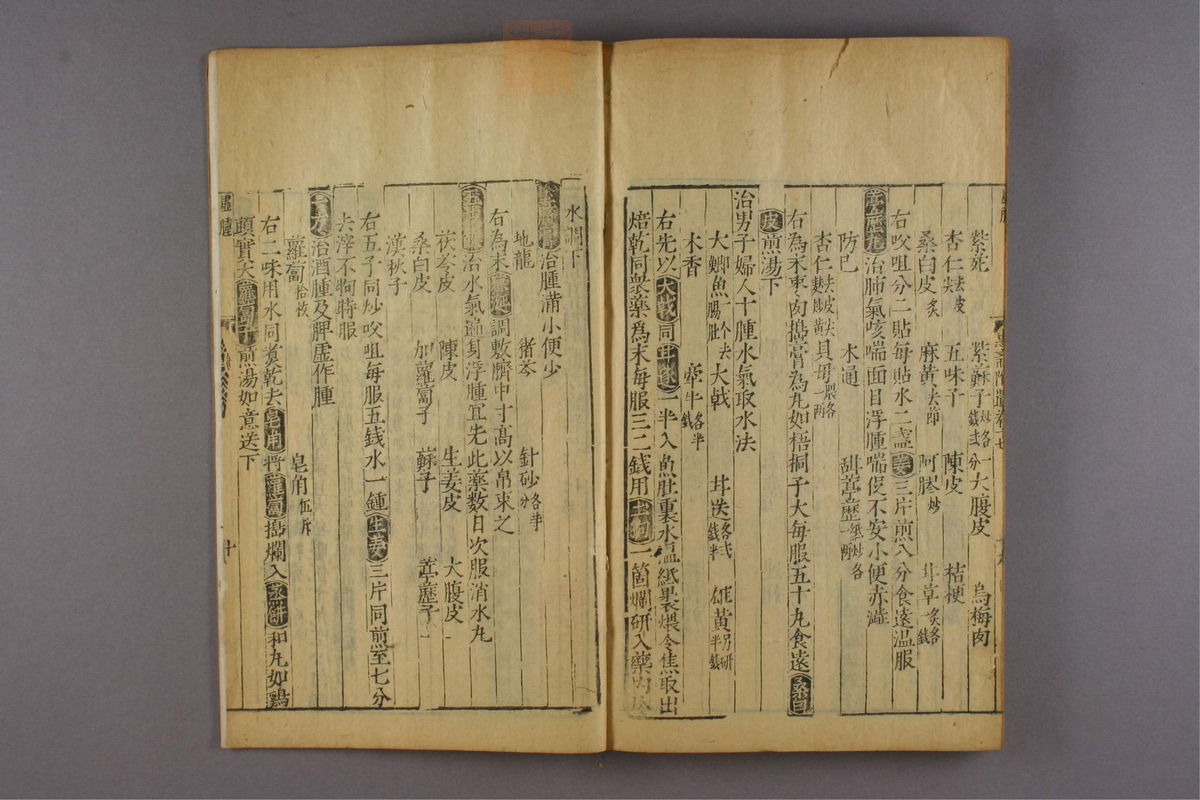 紫菀 紫蘇子 大腹皮 烏梅肉
杏仁去皮 五味子 陳皮 桔梗
桑白皮炙 麻黃去節 阿膠炒 甘草炙各
右㕮咀分二貼每貼水二盞姜三片煎八分食遠溫服
葶藶丸治肺氣咳喘面目浮腫喘促不安小便赤澁
防己 木通 甜葶藶
杏仁 貝母
右為末棗肉搗膏為丸如梧桐子大每服五十丸食遠桑白
皮煎湯下
治男子婦人十腫水氣取水法
大鯽魚一个去腸肚 大戟 甘遂 雄黃另研
木香 牽牛各半
右先以大戟同甘遂一半入魚肚裏水溫紙裹煨令焦取出
焙乾同衆藥爲末每服三二錢用土狗一箇爛研入藥內
水調下
治腫滿小便少
地龍 猪苓 針砂各等分
右為末調敷臍中寸高以帛束之
治水氣遍身浮腫宜先此藥數日次服消水丸
茯苓皮 陳皮 生姜皮 大腹皮
桑白皮 加蘿蔔子 蘇子 葶藶子
漢椒子
右五子同炒㕮咀每服五錢水一鍾生姜三片同煎至七分
去滓不拘時服
一方治酒腫及脾虛作腫
蘿蔔拾枚 皂角伍斤
右二味用水同煮乾去皂角將蘿蔔搗爛入蒸餅和丸如鷄
頭實大蘿蔔子煎湯如意送下
十